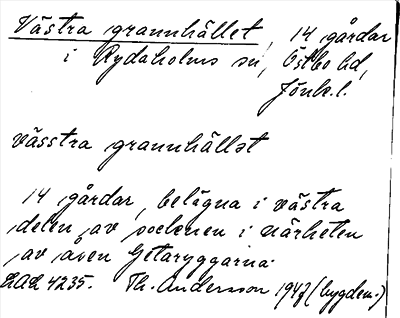 Västra grannhället, 14 gårdar
i Rydaholms sn, Östbo hd,
Jönk.l.
västra grannhället
14 gårdar, belägna i västra
delen av socknen i närheten
av åsen Getaryggarna.
ULL 4235. Th. Andersson 1947 (bygden.)